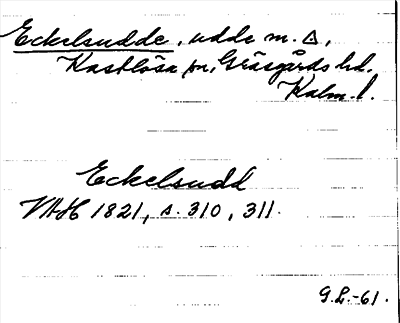 Eckelsudde, udde m. △,
Kastlösa sn, Gräsgårds hd.
Kalm. l.
Eckelsudd
VAH 1821, s. 310, 311.
G.L.-61.